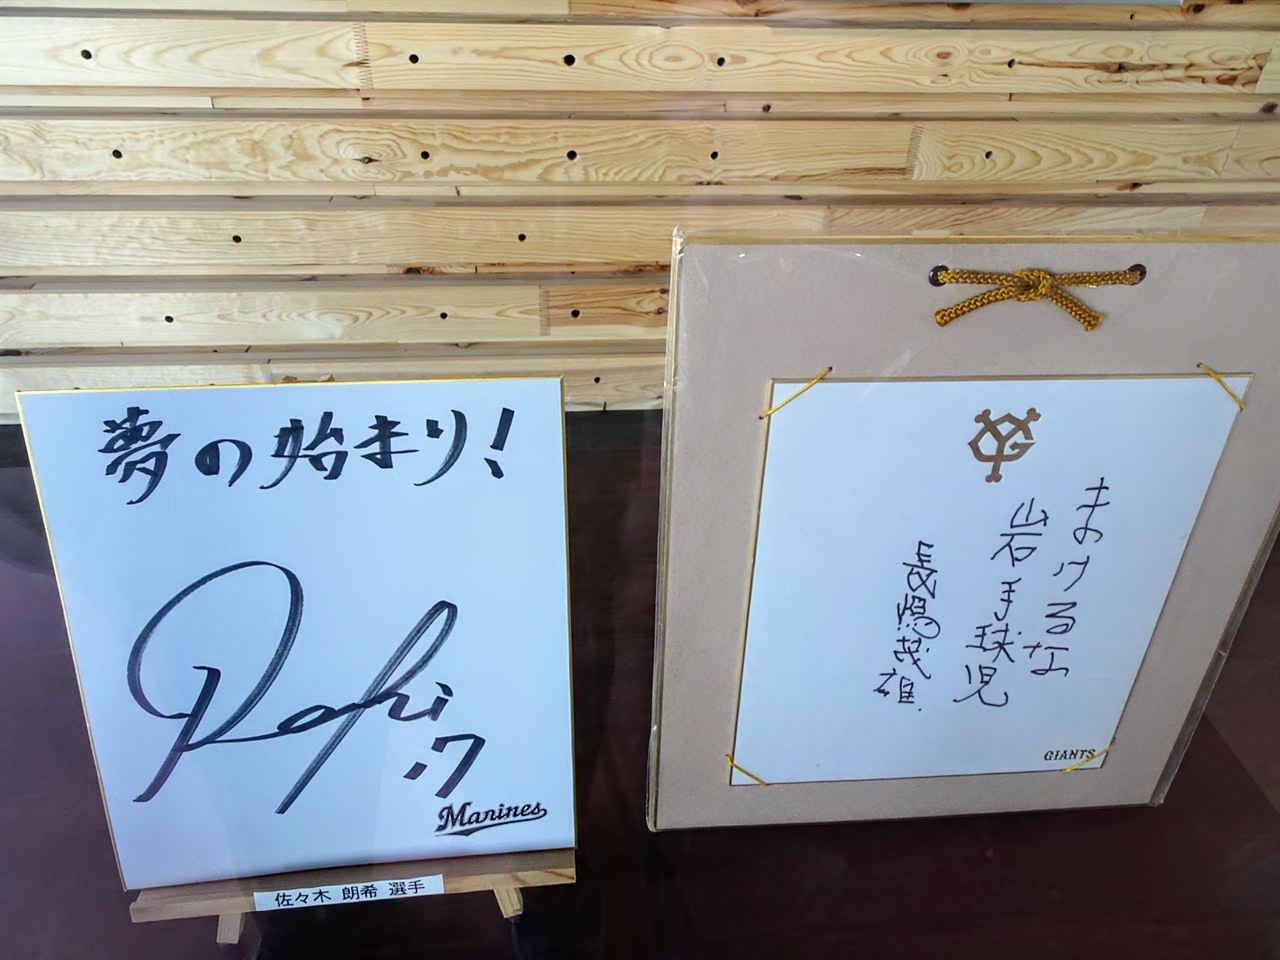 夢の始まり!
Roki
.17
Marines
佐々木 朗希 選手
まけるな
岩手球児
長嶋茂雄
GIANTS